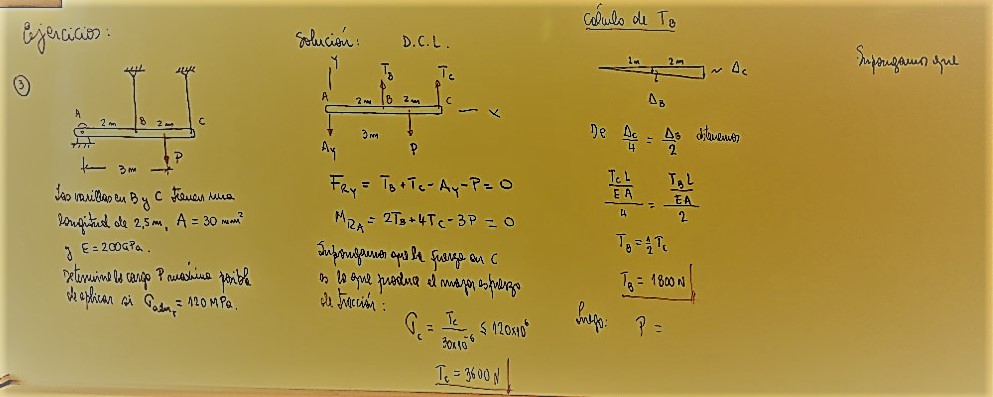 Ejercicios:
③
A
2m
B
2m
C
P
3m
Las varillas en B y C tienen una
longitud de 2,5m, A = 30 mm²
y E = 200 GPa.
Determine la carga P máxima posible
de aplicar si σadm = 120 MPa.
Solución: D.C.L.
y
TB
TC
A
2m
B
2m
C
x
3m
Ay
P
FRy = TB + TC - Ay - P = 0
MRA = 2TB + 4TC - 3P = 0
Supongamos que la fuerza en C
es la que produce el mayor esfuerzo
de tracción:
σc = Tc / 30x10⁻⁶ ≤ 120x10⁶
Tc = 3600 N
Cálculo de TB
2m
2m
~ Δc
ΔB
De Δc/4 = ΔB/2 obtenemos
(Tc L / EA) / 4 = (TB L / EA) / 2
TB = 1/2 Tc
TB = 1800 N
Luego: P =
Supongamos que